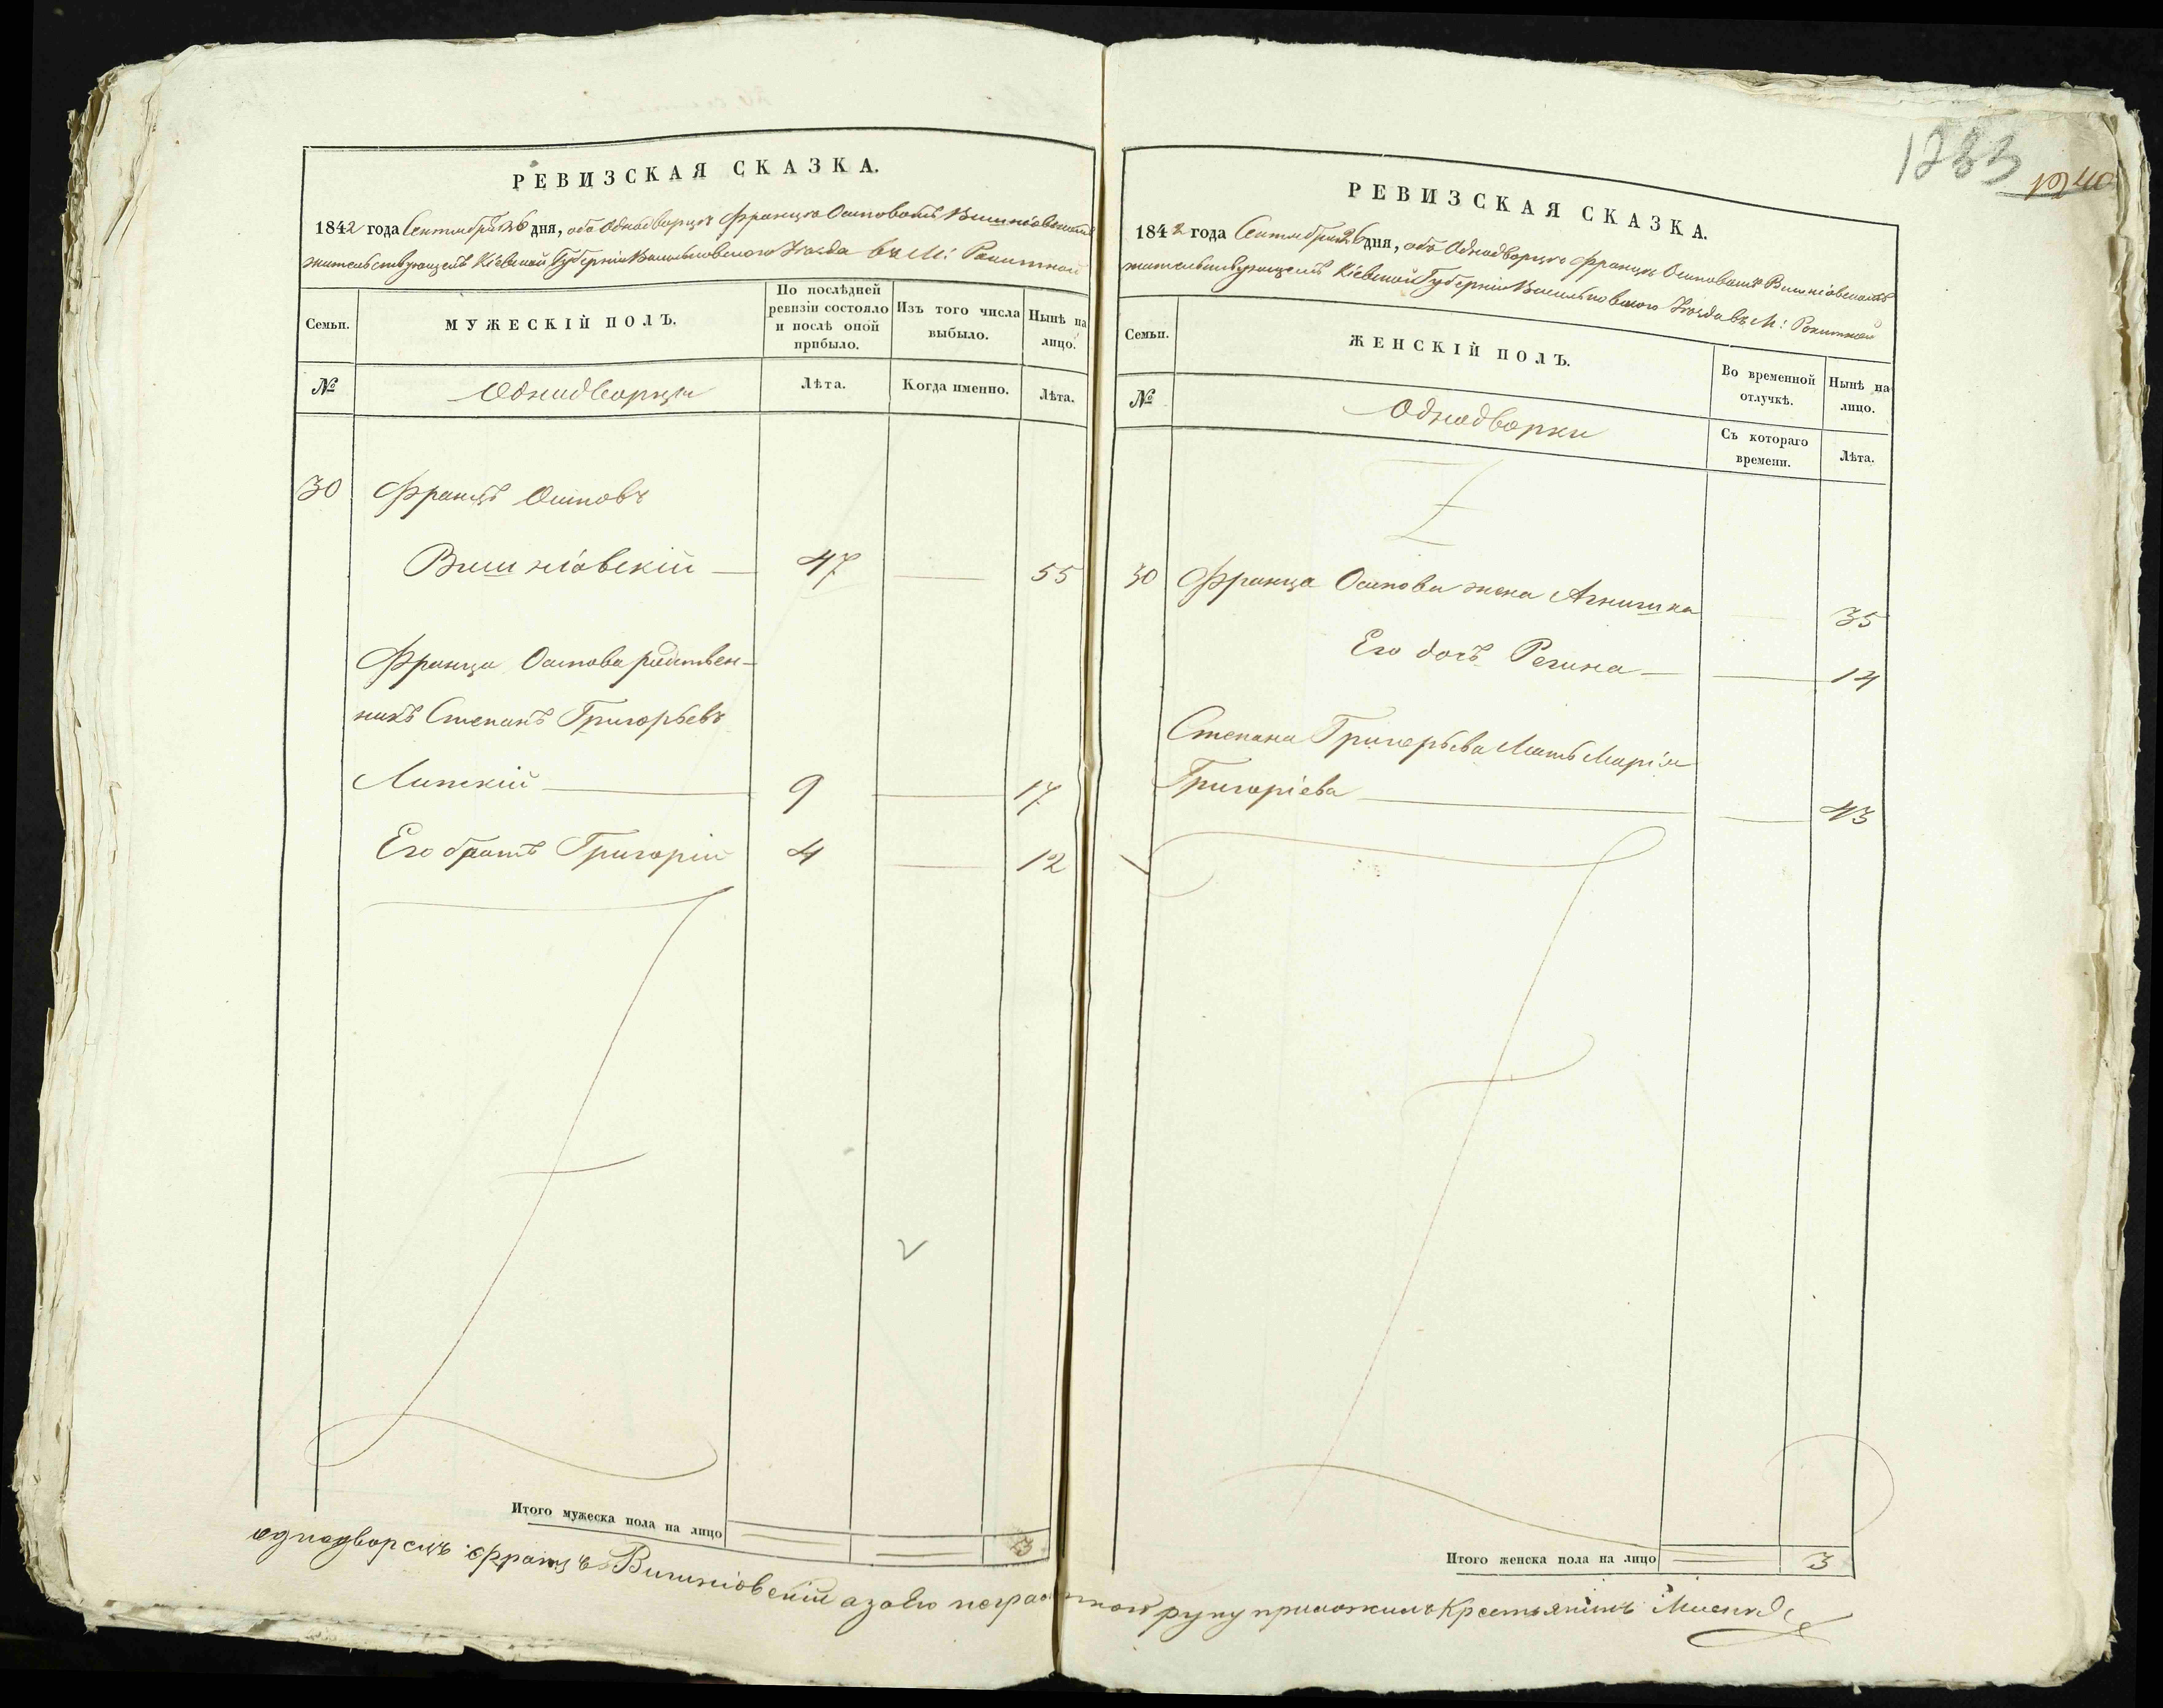 РЕВИЗСКАЯ СКАЗКА.
1842 года Сентября 26 дня, объ Однодворцѣ Францѣ Осиповѣ Вишніовскомъ
жительствующемъ Кіевской Губерніи Васильковскаго Уѣзда въ М: Рокитной
Семьи.
МУЖЕСКІЙ ПОЛЪ.
По послѣдней ревизіи состояло и послѣ оной прибыло.
Изъ того числа выбыло.
Нынѣ на лицо.
№
Однодворцы
Лѣта.
Когда именно.
Лѣта.
30 Францъ Осиповъ
Вишніовскій — 47 — 55
Франца Осипова родствен-
никъ Степанъ Григорьевъ
Липскій — 9 — 17
Его братъ Григорій 4 — 12
Итого мужеска пола на лицо 3
1233
1240
РЕВИЗСКАЯ СКАЗКА.
1842 года Сентября 26 дня, объ Однодворцѣ Францѣ Осиповѣ Вишніовскомъ
жительствующемъ Кіевской Губерніи Васильковскаго Уѣзда въ М: Рокитной
Семьи.
ЖЕНСКІЙ ПОЛЪ.
Во временной отлучкѣ.
Нынѣ на лицо.
№
Однодворки
Съ котораго времени.
Лѣта.
30 Франца Осипова жена Агнишка — 35
Его дочь Регина — 14
Степана Григорьева Мать Марія
Григоріева — 43
Итого женска пола на лицо 3
однодворецъ Францъ Вишніовскій а за его неграмотной руку приложилъ Крестьянинъ